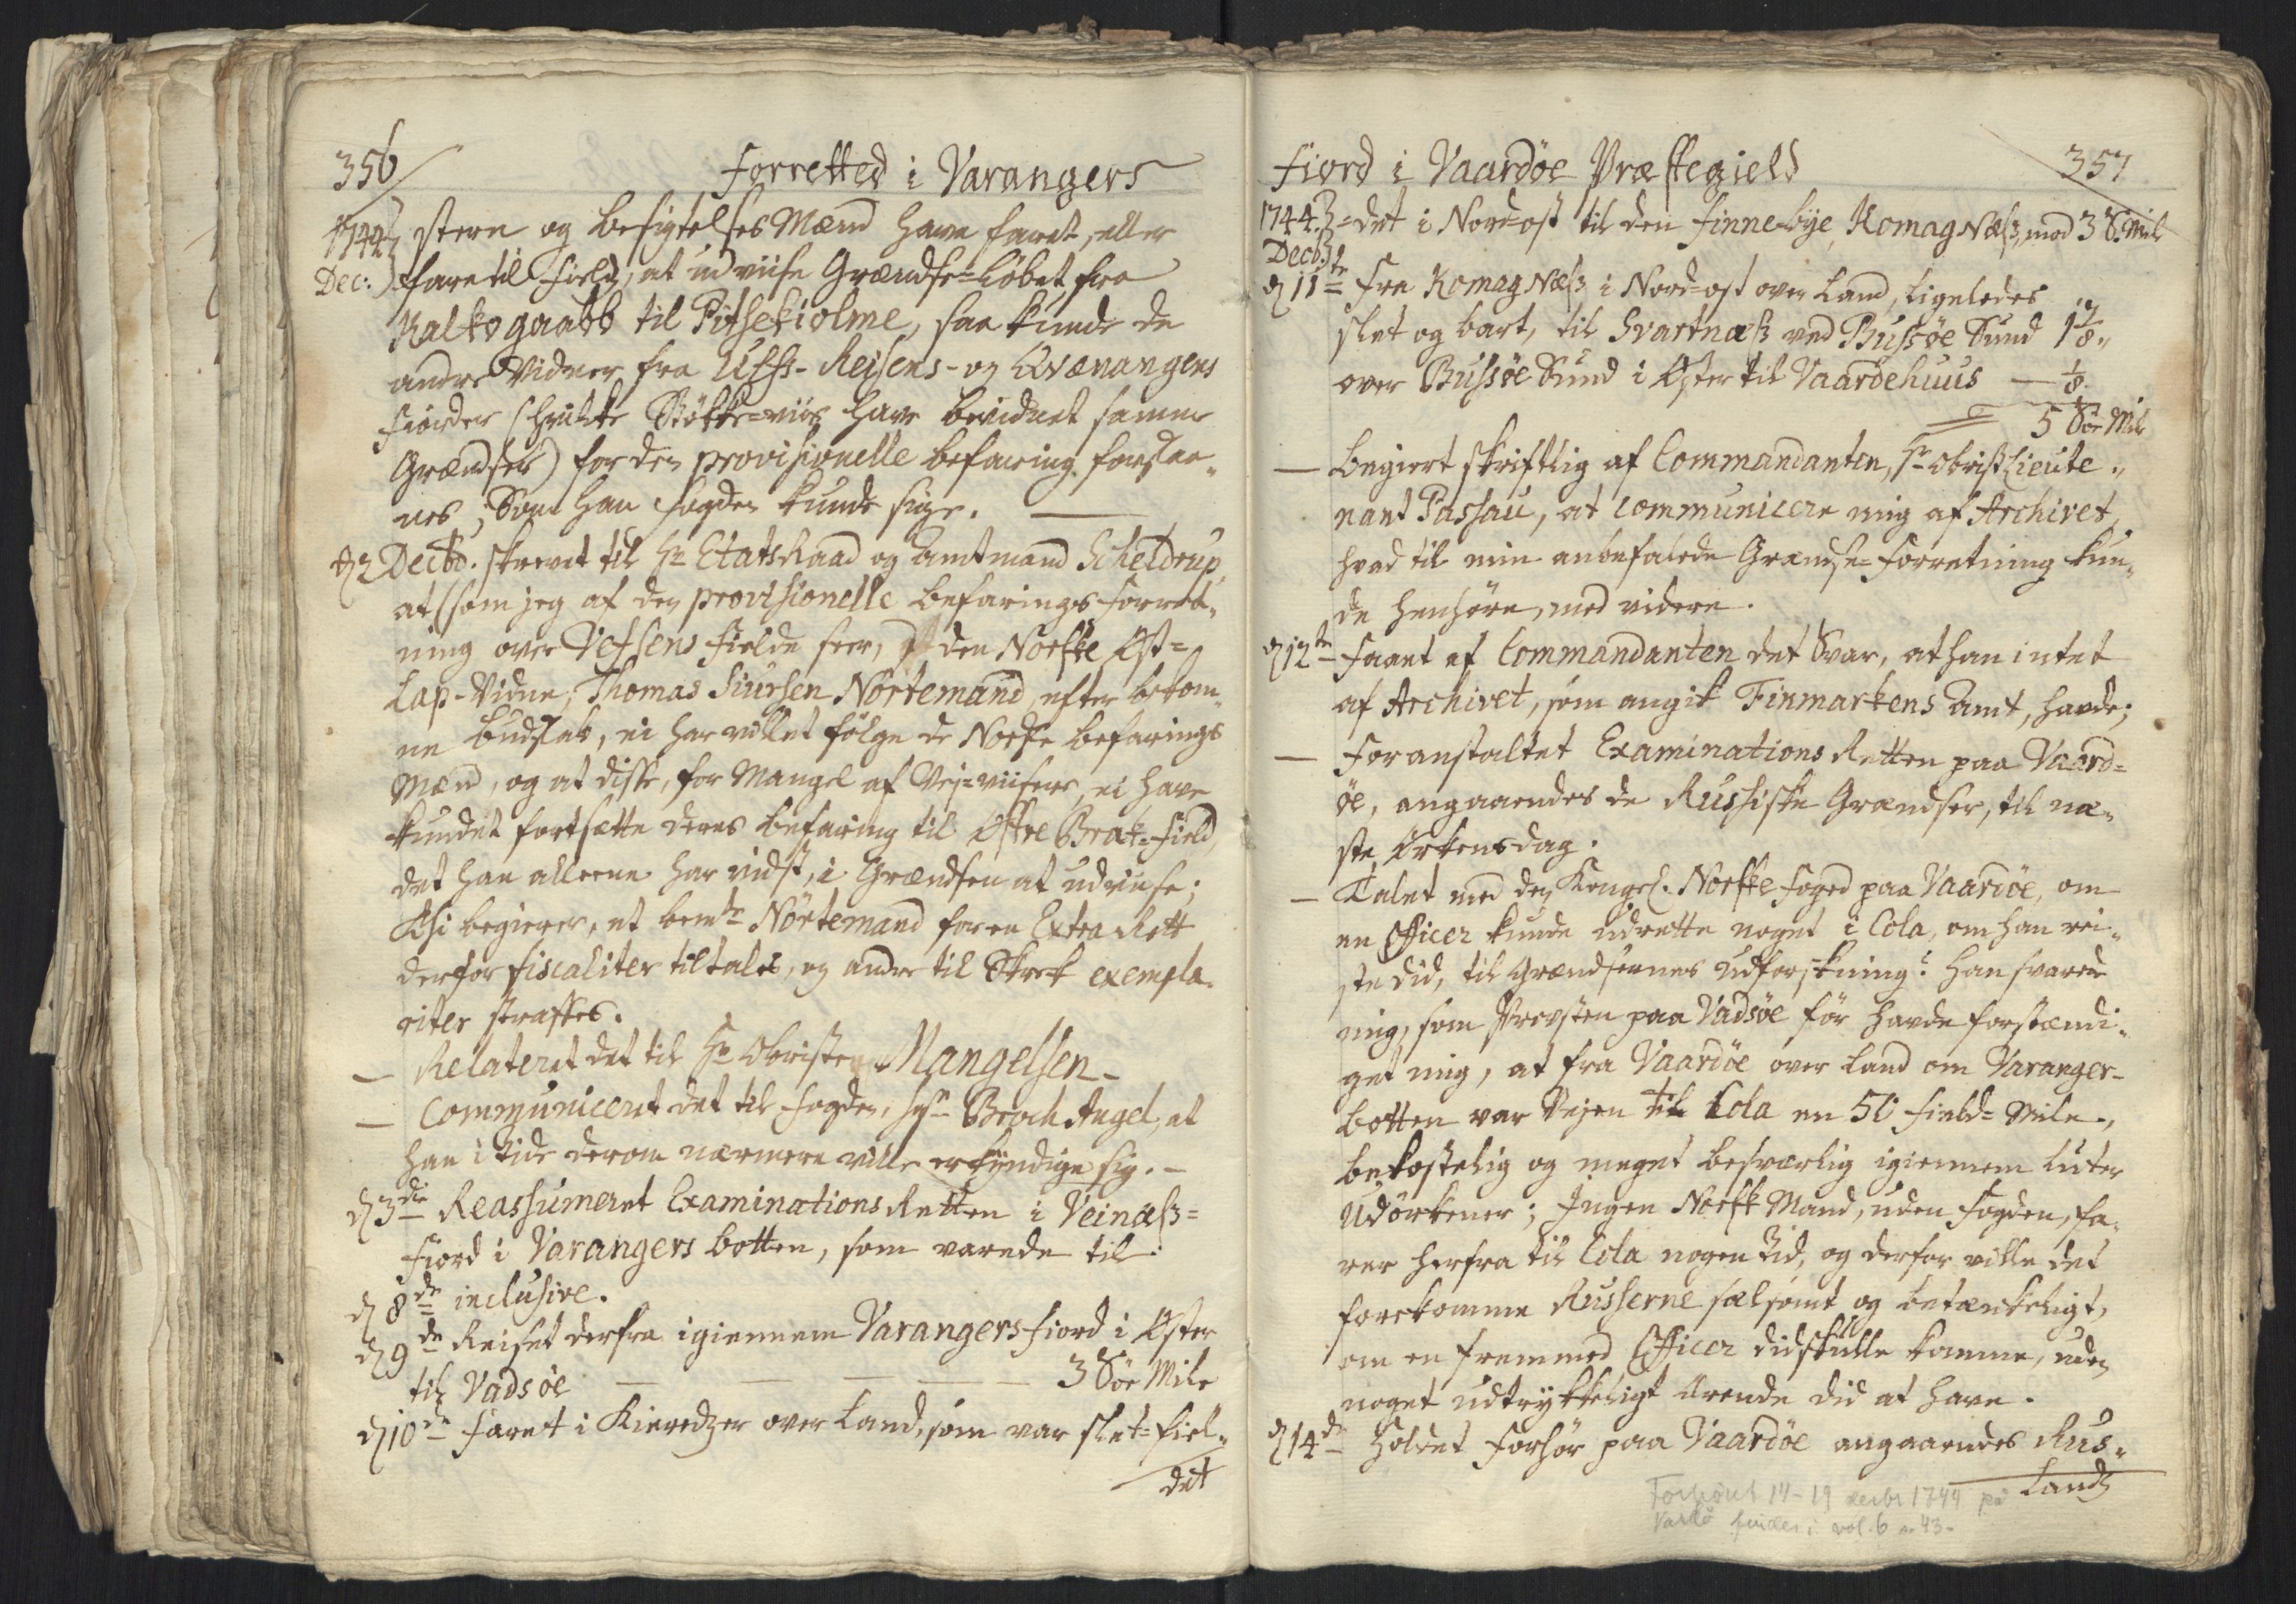 356
Forretted i Varangers
1744 stern og Besigtelses Mænd have faret, eller
Dec: fare til Fields, at udviise Grændse-Løbet fra
Kalkogaabb til Pitsekiolme, saa kunde de
andre Vidner fra Ulfs- Reisens- og Qvænangens
Fiorder (hvilke Støkke-viis have bevidnet samme
Grændser) for den provisionelle Befaring forstaa-
nes, Som han Fogden kunde sige.
d 2 Decbr. skrevet til Hr EtatsRaad og Amtmand Scheldrup,
at (som jeg af den provisionelle Befarings Forret-
ning over Vefsens Fielde seer,) den Norske Øst-
Lap-Vidne, Thomas Siursen Nørtemand, efter bekom-
ne Budskab, ei har villet følge de Norske Befarings
Mænd, og at disse, for Mangel af Vej-viisere, ei have
kundet fortsætte deres Befaring til Østre Brak-Field,
det han alleene har vidst, i Grændsen at udviise;
Thi begierer, at bemte Nørtemand for en Extra Rett
derfor fiscaliter tiltales, og andre til Skrek exempla-
riter straffes.
— Relateret det til Hr Obristen Mangelsen
— Communiceret det til Fogden, Sr Broch Angel, at
han i Tide derom nærmere ville erkyndige sig.
d 3die Reassumeret Examinations Retten i Veinæs-
Fiord i Varangers botten, som varede til
d 8de inclusive.
d 9de Reiset derfra igiennem Varangersfiord i Øster
til Vadsøe — — — — — 3 Søe Mile
d 10de Faret i Kieredzer over Land, som var slet-fiel-
det
Fiord i Vaardøe Præstegield
357
1744. det i Nord-ost til den Finne-bye, KomagNæs, mod 3 S. Mil
Decb.
d 11te Fra KomagNæs i Nord-ost over Land, ligeledes
slet og bart, til Svartnæs ved Bussøe Sund 1 7/8
over Bussøe Sund i Øster til Vaardehuus — 1/8
5 Søe Mile
— Begiert skriftlig af Commandanten, Hr ObristLieute-
nant Passau, at communicere mig af Archivet,
hvad til min anbefalede Grændse-Forretning kun-
de henhøre, med videre.
d 12te Faaet af Commandanten det Svar, at han intet
af Archivet, som angik Finmarkens Amt, havde;
— Foranstaltet Examinations Retten paa Vaard-
øe, angaaendes de Russiske Grændser, til næ-
ste Ørkensdag.
— Talet med den Kongel. Norske Foged paa Vaardøe, om
en Officer kunde udrette noget i Cola, om han rei-
ste did, til Grændsernes Udforskning? Han svarede
mig, som Provsten paa Vadsøe før havde forstændi-
get mig, at fra Vaardøe over Land om Varanger-
botten var Vejen til Cola en 50 Field-Mile,
bekostelig og meget besværlig igiennem luter
Udørkener; Ingen Norsk Mand, uden Fogden, fa-
rer herfra til Cola nogen Tid, og derfor ville det
forekomme Russerne sælsomt og betænkeligt,
om en fremmed Officer did skulle komme, uden
noget udtrykkeligt Ærende did at have.
d 14de Holdet Forhør paa Vaardøe angaaendes Rus-
Lands
Forhøret 14-19 decbr 1744 på
Vardø findes i vol. 6 n. 43.